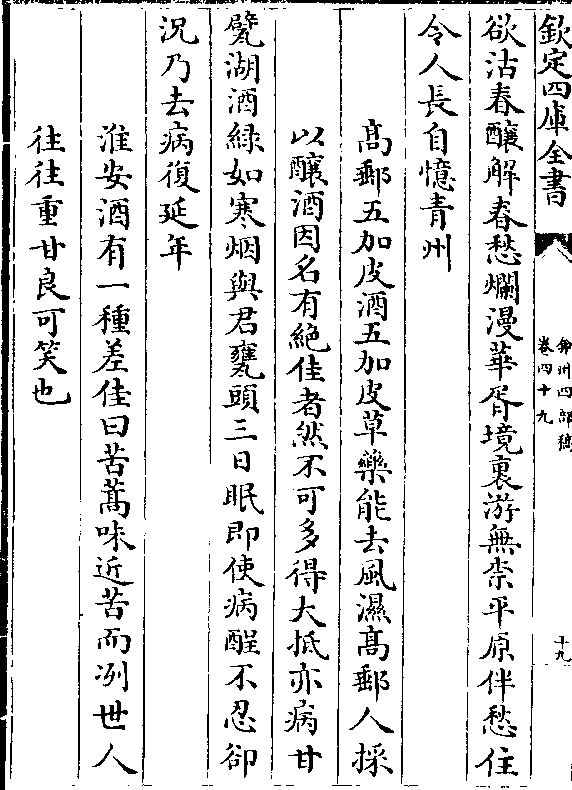 欽定四庫全書
弇州四部稿
卷四十九
十九
欲沽春釀解春愁爛漫華胥境裏游無柰平原伴愁住
令人長自憶青州
高郵五加皮酒五加皮草藥能去風濕高郵人採
以釀酒因名有絶佳者然不可多得大抵亦病甘
甓湖酒緑如寒烟與君甕頭三日眠即使病酲不忍卻
況乃去病復延年
淮安酒有一種差佳曰苦蒿味近苦而冽世人
往往重甘良可笑也